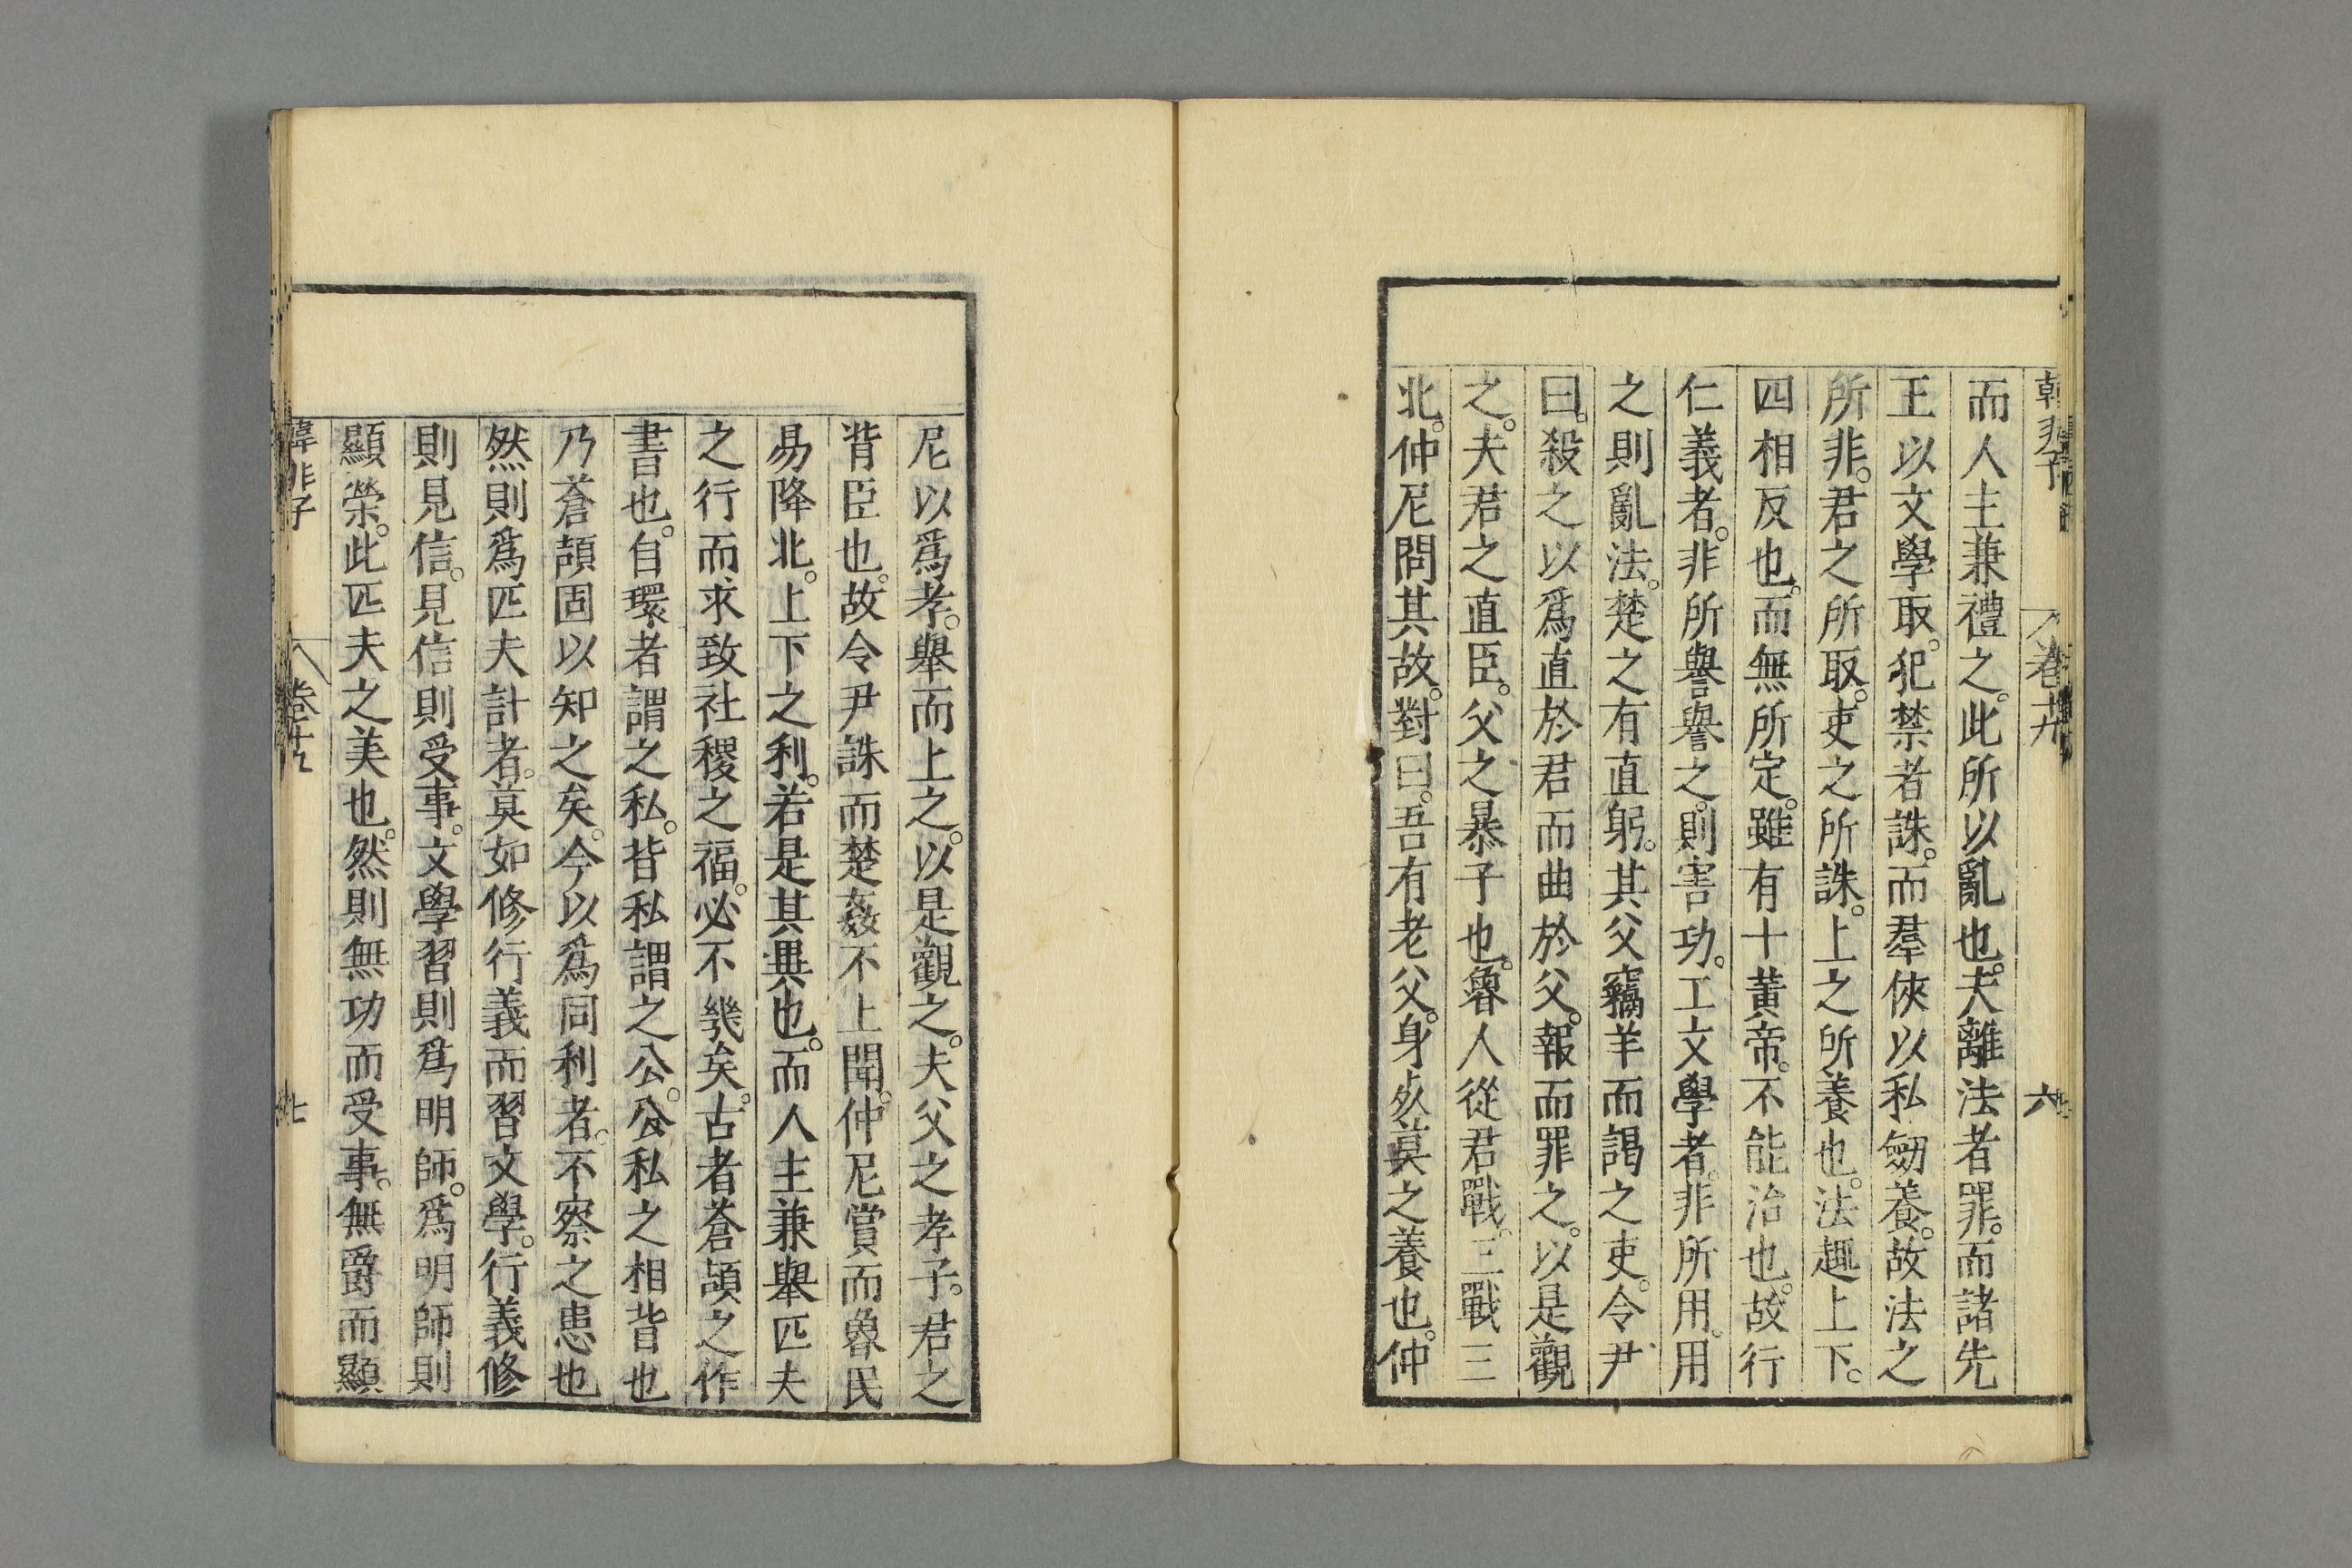 韓非子 卷十九 六
而人主兼禮之。此所以亂也。夫離法者罪。而諸先
王以文學取。犯禁者誅。而羣俠以私劒養。故法之
所非。君之所取。吏之所誅。上之所養也。法趣上下。
四相反也。而無所定。雖有十黃帝。不能治也。故行
仁義者。非所譽譽之。則害功。工文學者。非所用。用
之則亂法。楚之有直躬。其父竊羊而謁之吏。令尹
曰。殺之以爲直於君而曲於父。報而罪之。以是觀
之。夫君之直臣。父之暴子也。魯人從君戰。三戰三
北。仲尼問其故。對曰。吾有老父。身死莫之養也。仲
尼以爲孝。舉而上之。以是觀之。夫父之孝子。君之
背臣也。故令尹誅而楚姦不上聞。仲尼賞而魯民
易降北。上下之利。若是其異也。而人主兼舉匹夫
之行而求致社稷之福。必不幾矣。古者蒼頡之作
書也。自環者謂之私。背私謂之公。公私之相背也
乃蒼頡固以知之矣。今以爲同利者。不察之患也
然則爲匹夫計者。莫如修行義而習文學。行義修
則見信。見信則受事。文學習則爲明師。爲明師則
顯榮。此匹夫之美也。然則無功而受事。無爵而顯
韓非子 卷十九 七